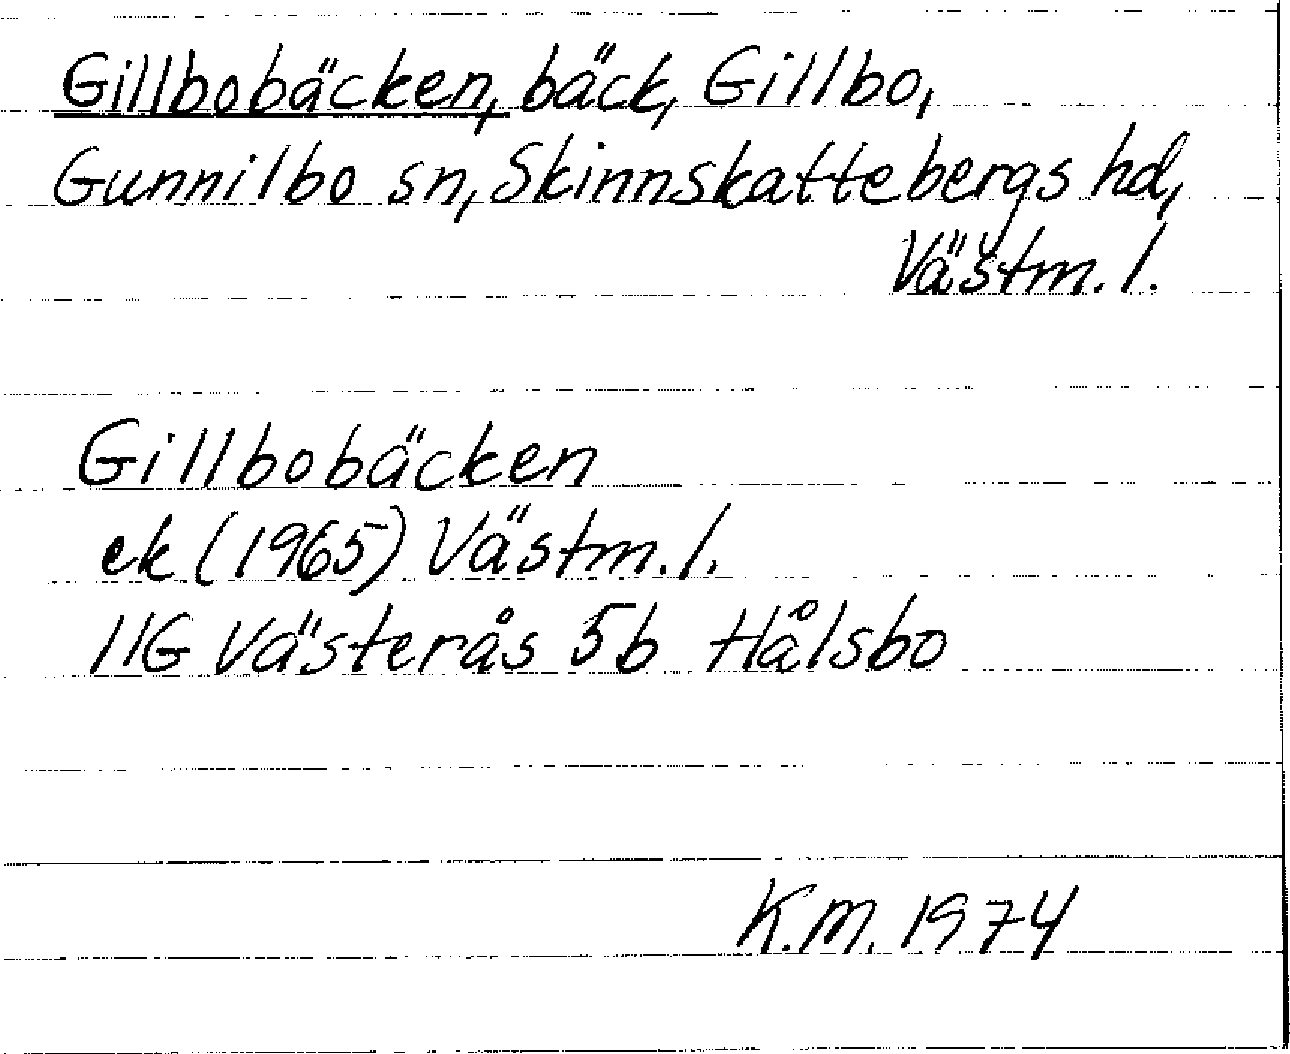 Gillbobäcken, bäck, Gillbo,
Gunnilbo sn, Skinnskattebergs hd,
Västm. l.
Gillbobäcken
ek (1965) Västm. l.
11G Västerås 5b Hålsbo
K.M. 1974